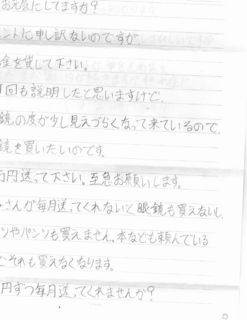 お元気にしてますか?
ントに申し訳ないのですが
金を貸して下さい。
回も説明したと思いますけど、
鏡の度が少し見えづらくなって来ているので、
鏡を買いたいのです。
万円送って下さい。至急お願いします。
さんが毎月送ってくれないと眼鏡も買えないし、
ツやパンツも買えません。本なども頼んでいる
どそれも買えなくなります。
円ずつ毎月送ってくれませんか?